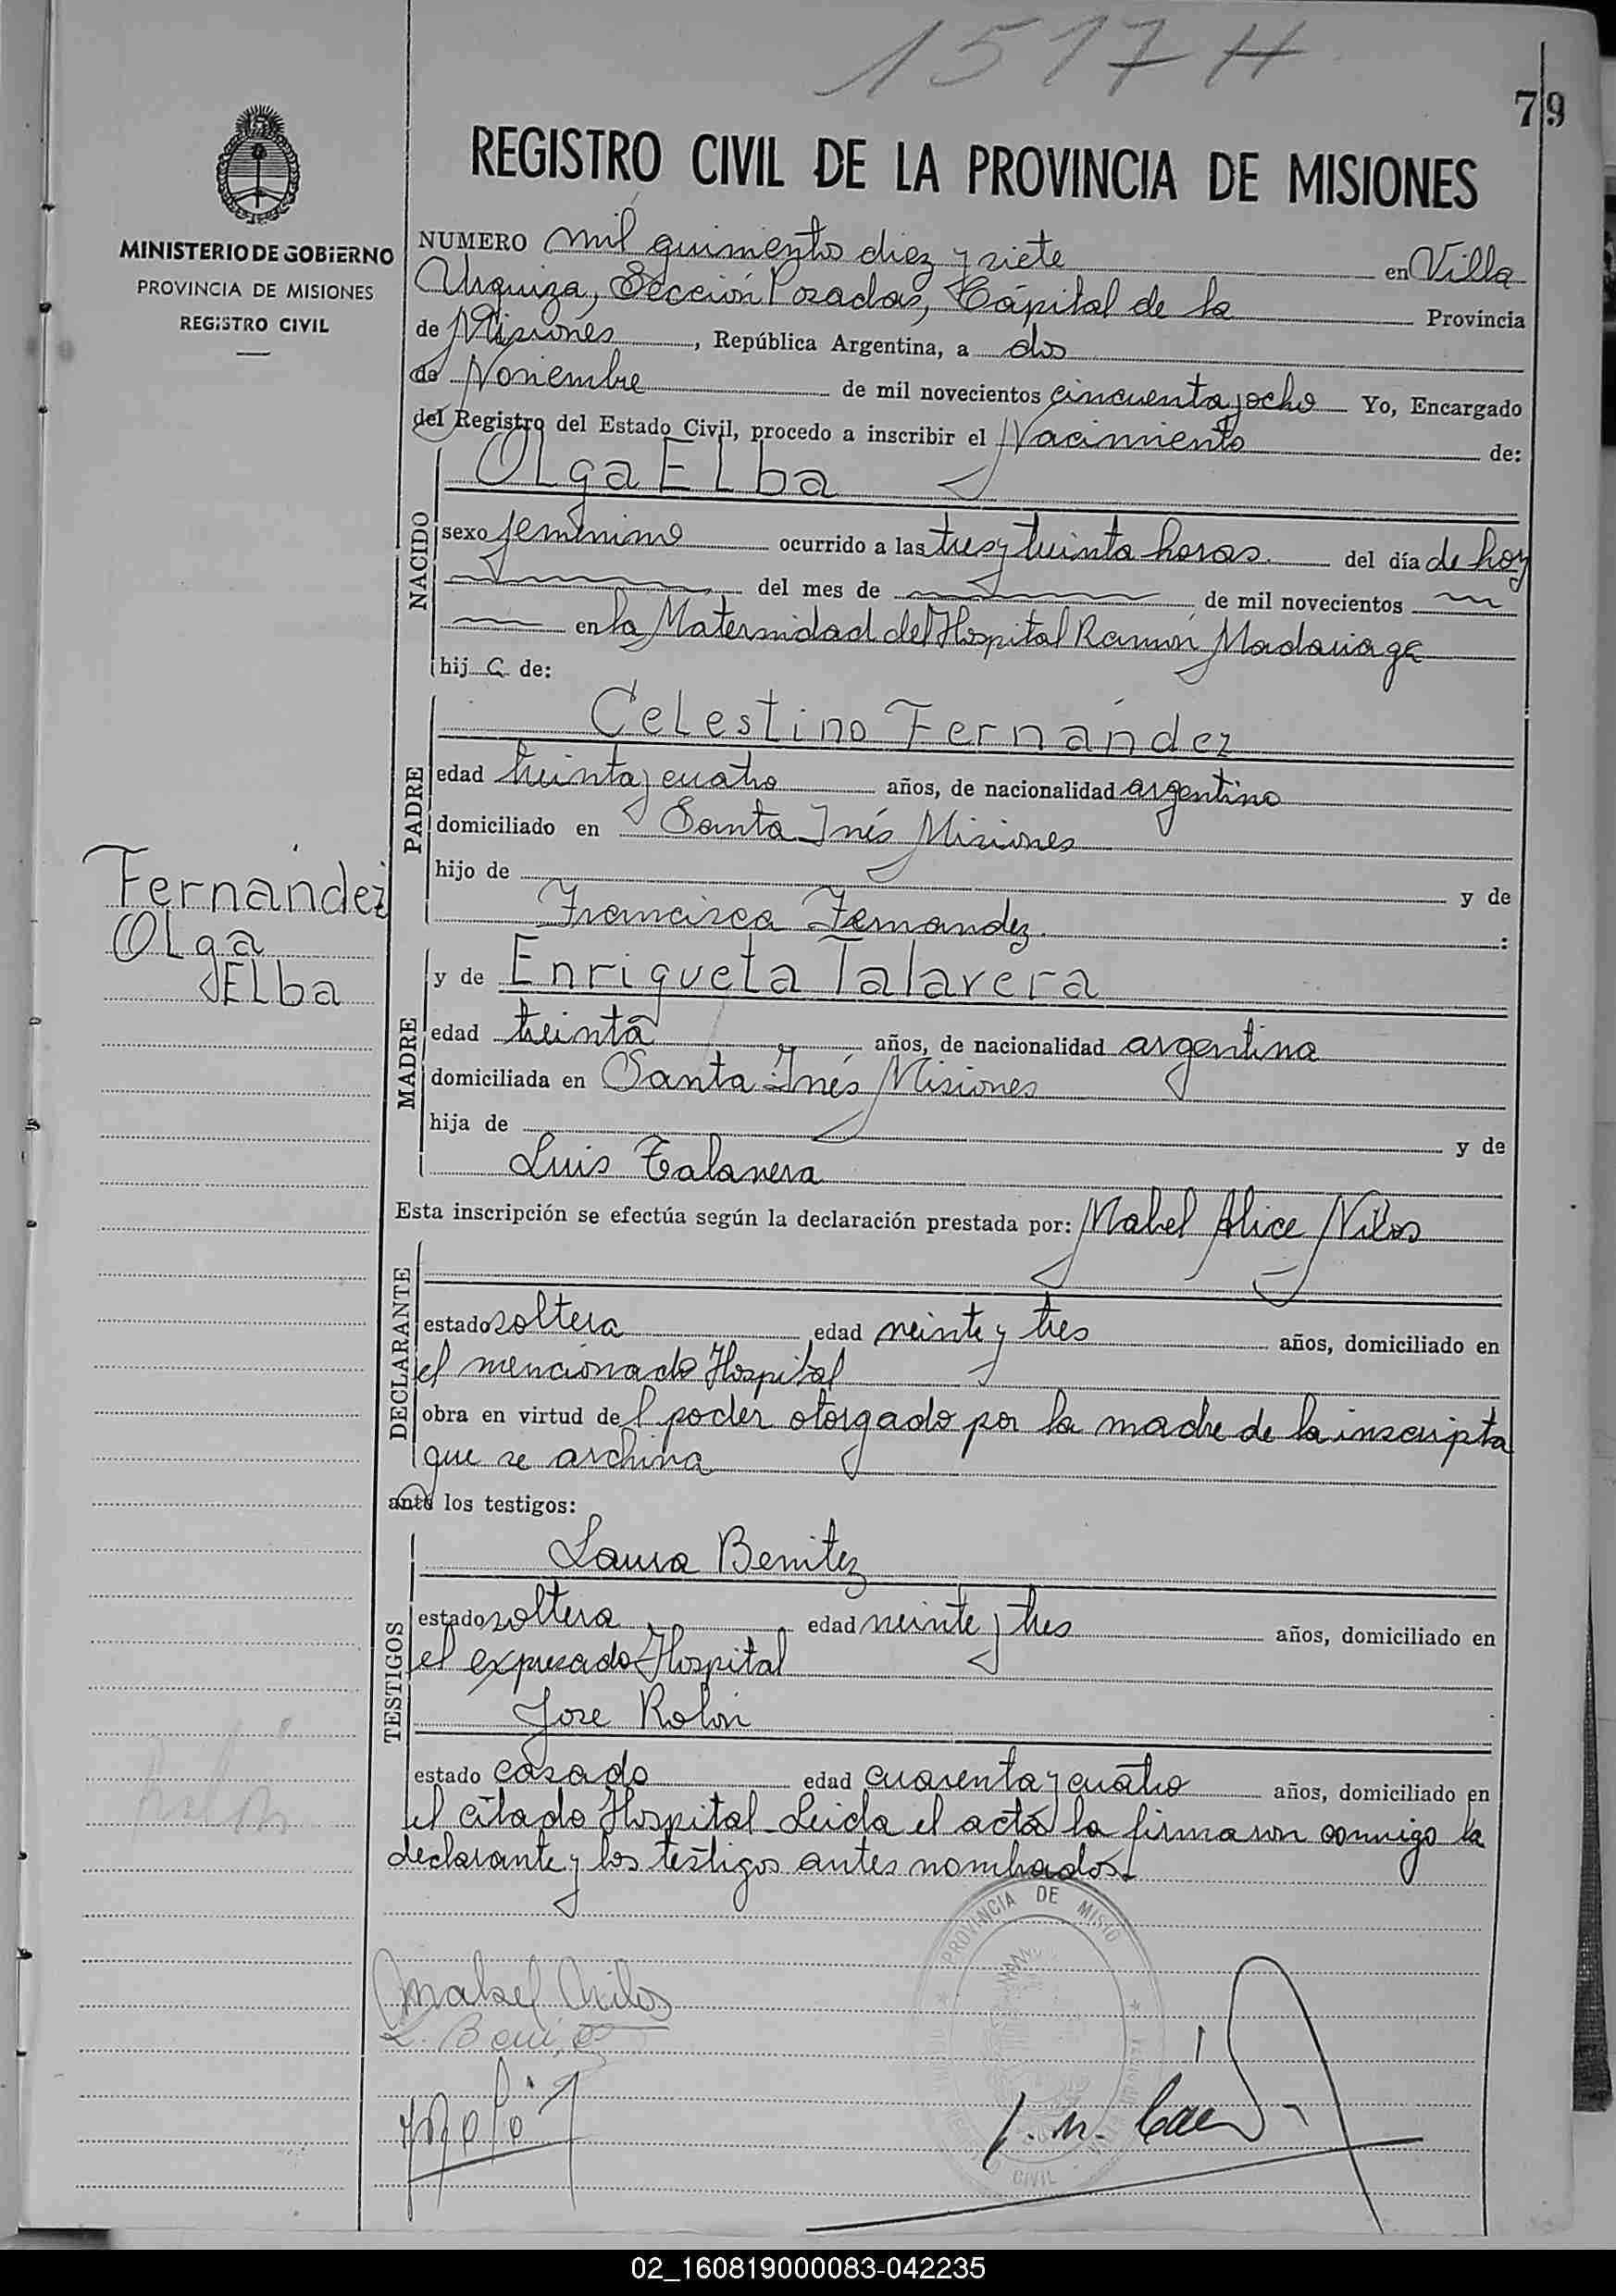 1517 H
79
REGISTRO CIVIL DE LA PROVINCIA DE MISIONES
MINISTERIO DE GOBIERNO
PROVINCIA DE MISIONES
REGISTRO CIVIL
NUMERO mil quimientos diez y siete en Villa
Urquiza, Sección Posadas, Cápital de la Provincia
de Misiones, República Argentina, a dos
de Noviembre de mil novecientos cincuenta y ocho Yo, Encargado
del Registro del Estado Civil, procedo a inscribir el Nacimiento de:
NACIDO
Olga Elba
sexo femenino ocurrido a las tres y treinta horas. del día de hoy
del mes de de mil novecientos
en la Maternidad del Hospital Ramón Madariaga
hij a de:
PADRE
Celestino Fernández
edad treinta y cuatro años, de nacionalidad argentino
domiciliado en Santa Inés Misiones
hijo de y de
Francisca Fernandez. :
Fernández
Olga
Elba
MADRE
y de Enriqueta Talavera
edad treinta años, de nacionalidad argentina
domiciliada en Santa Inés Misiones
hija de y de
Luis Talavera
Esta inscripción se efectúa según la declaración prestada por: Mabel Alice Vilos
DECLARANTE
estado soltera edad veinte y tres años, domiciliado en
el mencionado Hospital
obra en virtud de l poder otorgado por la madre de la inscripta
que se archiva
ante los testigos:
TESTIGOS
Laura Benitez
estado soltera edad veinte y tres años, domiciliado en
el expresado Hospital
Jose Rolón
estado casado edad cuarenta y cuatro años, domiciliado en
el citado Hospital - Leida el acta la firmaron conmigo la
declarante y los testigos antes nombrados.
PROVINCIA DE MISIO
CIVIL
Mabel Vilos
02_160819000083-042235